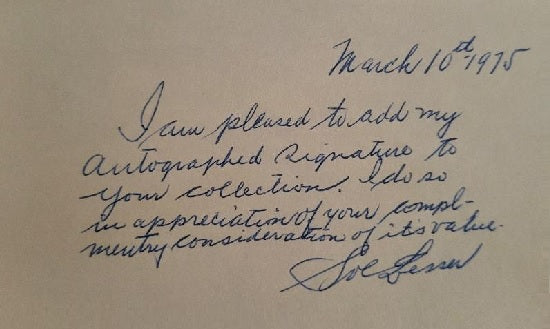 March 10th 1975
I am pleased to add my
Autographed Signature to
your collection. I do so
in appreciation of your compl-
mentry consideration of its value.
Sol Lesser